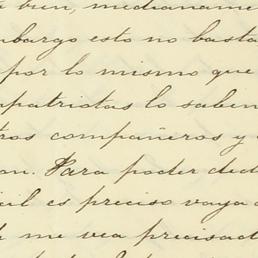 bien, medianame
mbargo esto no basta
por lo mismo que
patriotas lo saben
ros compañeros y
on. Para poder ded
cil es preciso vaya
me vea precisad